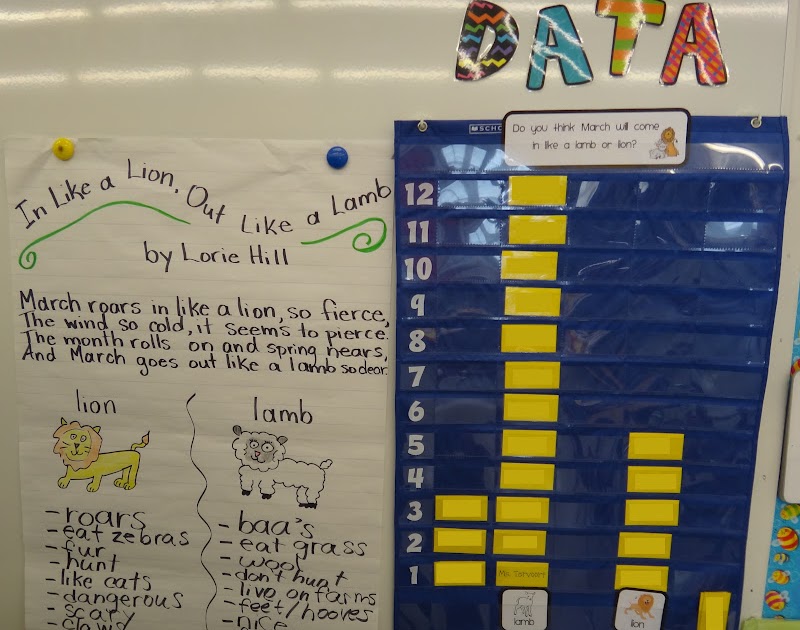 DATA
SCHO
Do you think March will come
in like a lamb or lion?
In Like a Lion, Out Like a Lamb
by Lorie Hill
March roars in like a lion, so fierce,
The wind so cold, it seems to pierce.
The month rolls on and spring nears,
And March goes out like a lamb so dear.
lion
-roars
-eat zebras
-fur
-hunt
-like cats
-dangerous
-scary
-claws
lamb
-baa's
-eat grass
-wool
-don't hunt
-live on farms
-feet/hooves
-nice
12
11
10
9
8
7
6
5
4
3
2
1
lamb
lion